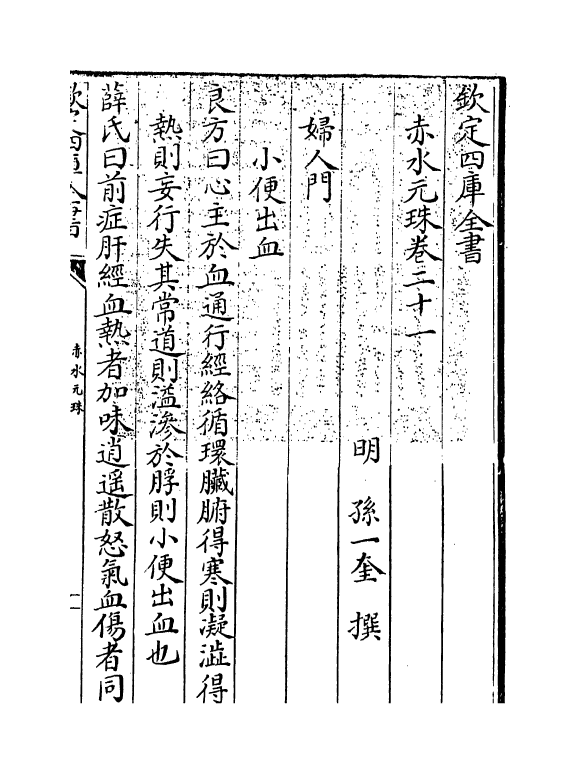 欽定四庫全書
赤水元珠卷二十一
明 孫一奎 撰
婦人門
小便出血
良方曰心主於血通行經絡循環臟腑得寒則凝澁得
熱則妄行失其常道則溢滲於脬則小便出血也
薛氏曰前症肝經血熱者加味逍遥散怒氣血傷者同
欽定四庫全書
赤水元珠